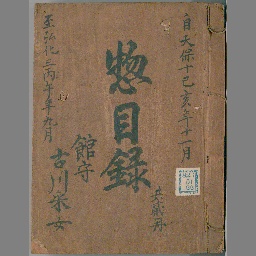 自天保十己亥年十一月
惣目録
至弘化三丙午年九月
館守
古川采女